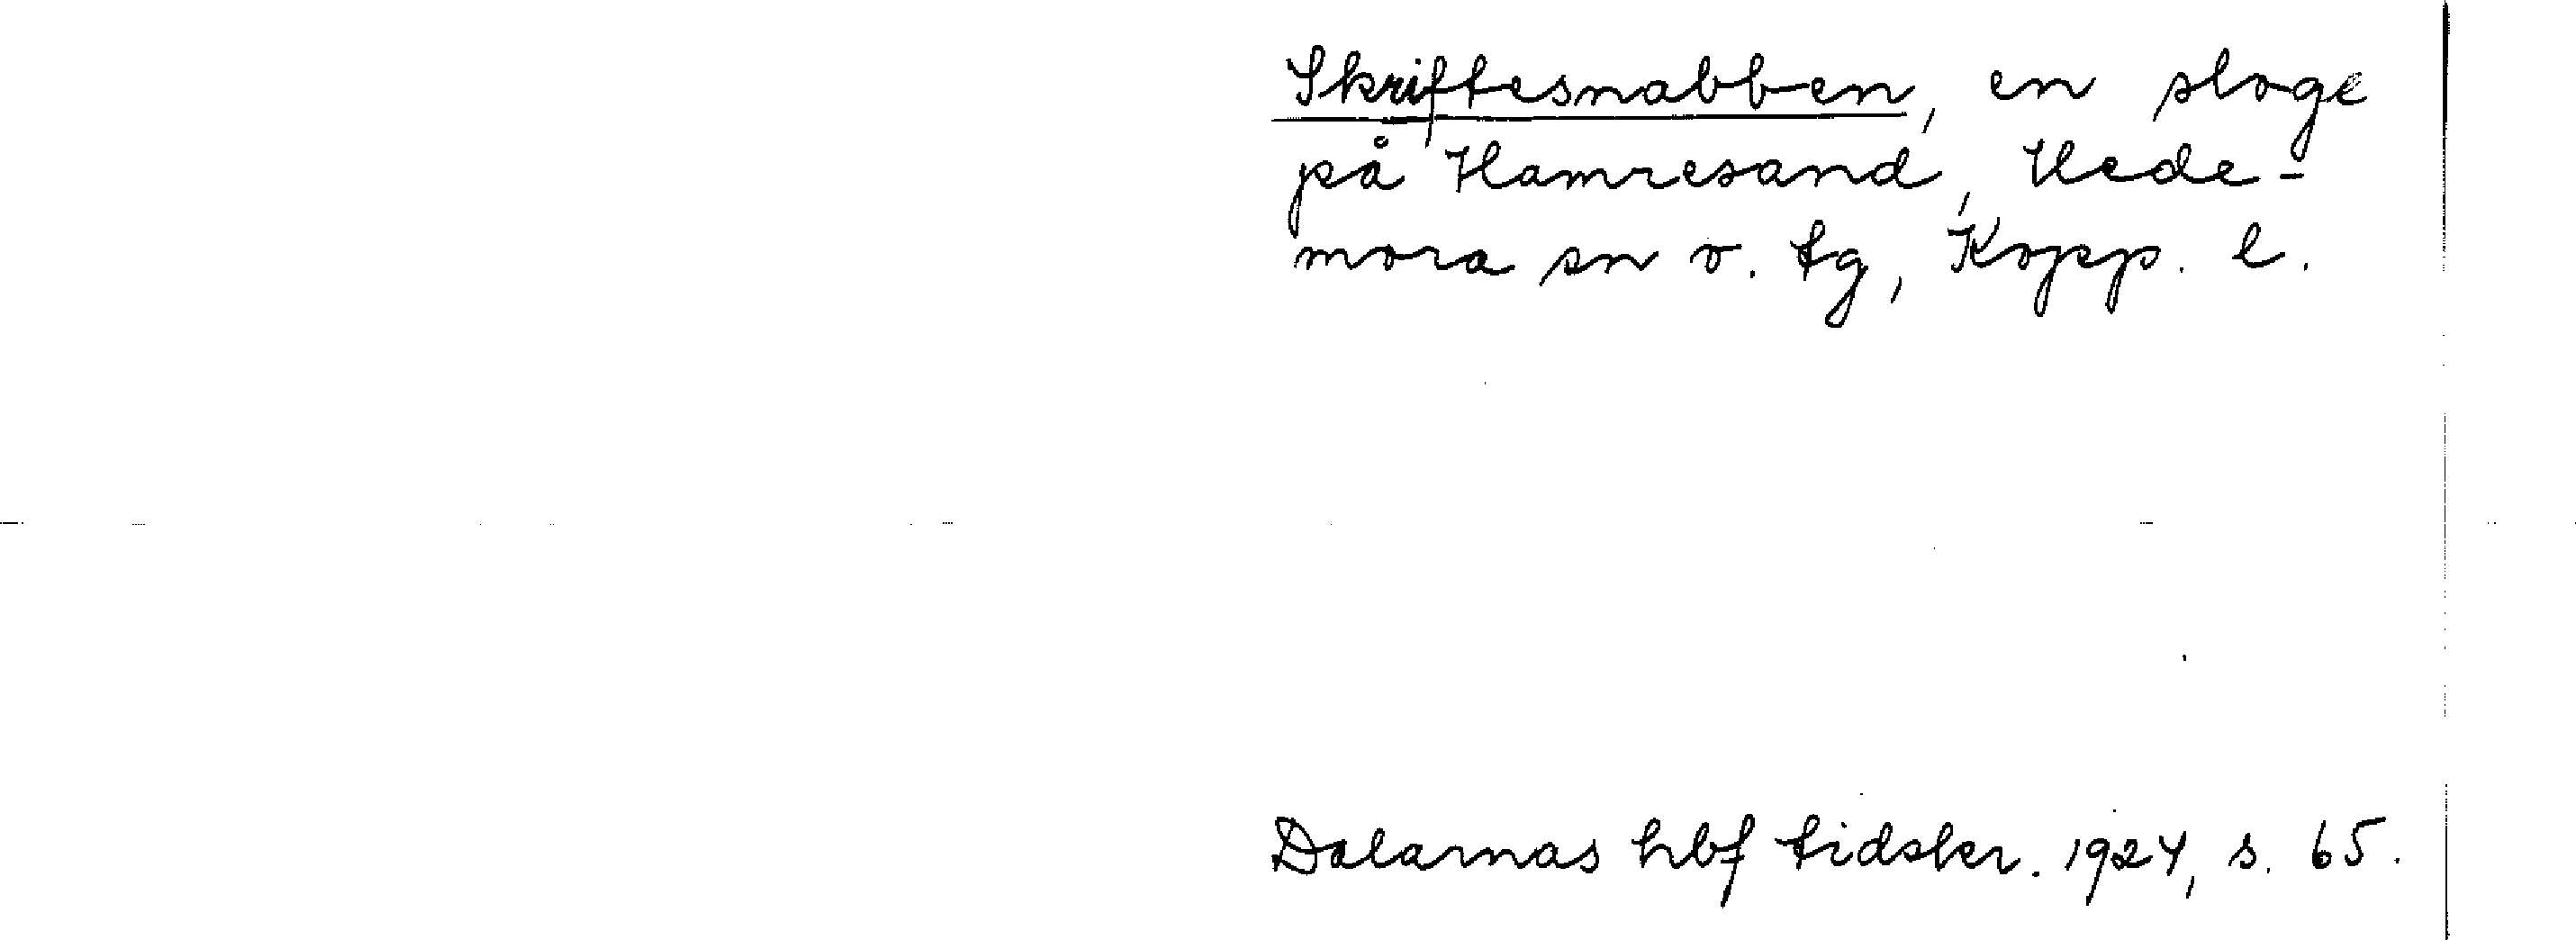 Skriftesnabben, en sloge
på Hamresand, Hede-
mora sn o. tg, Kopp. l.
Dalarnas hbf tidskr. 1924, s. 65.